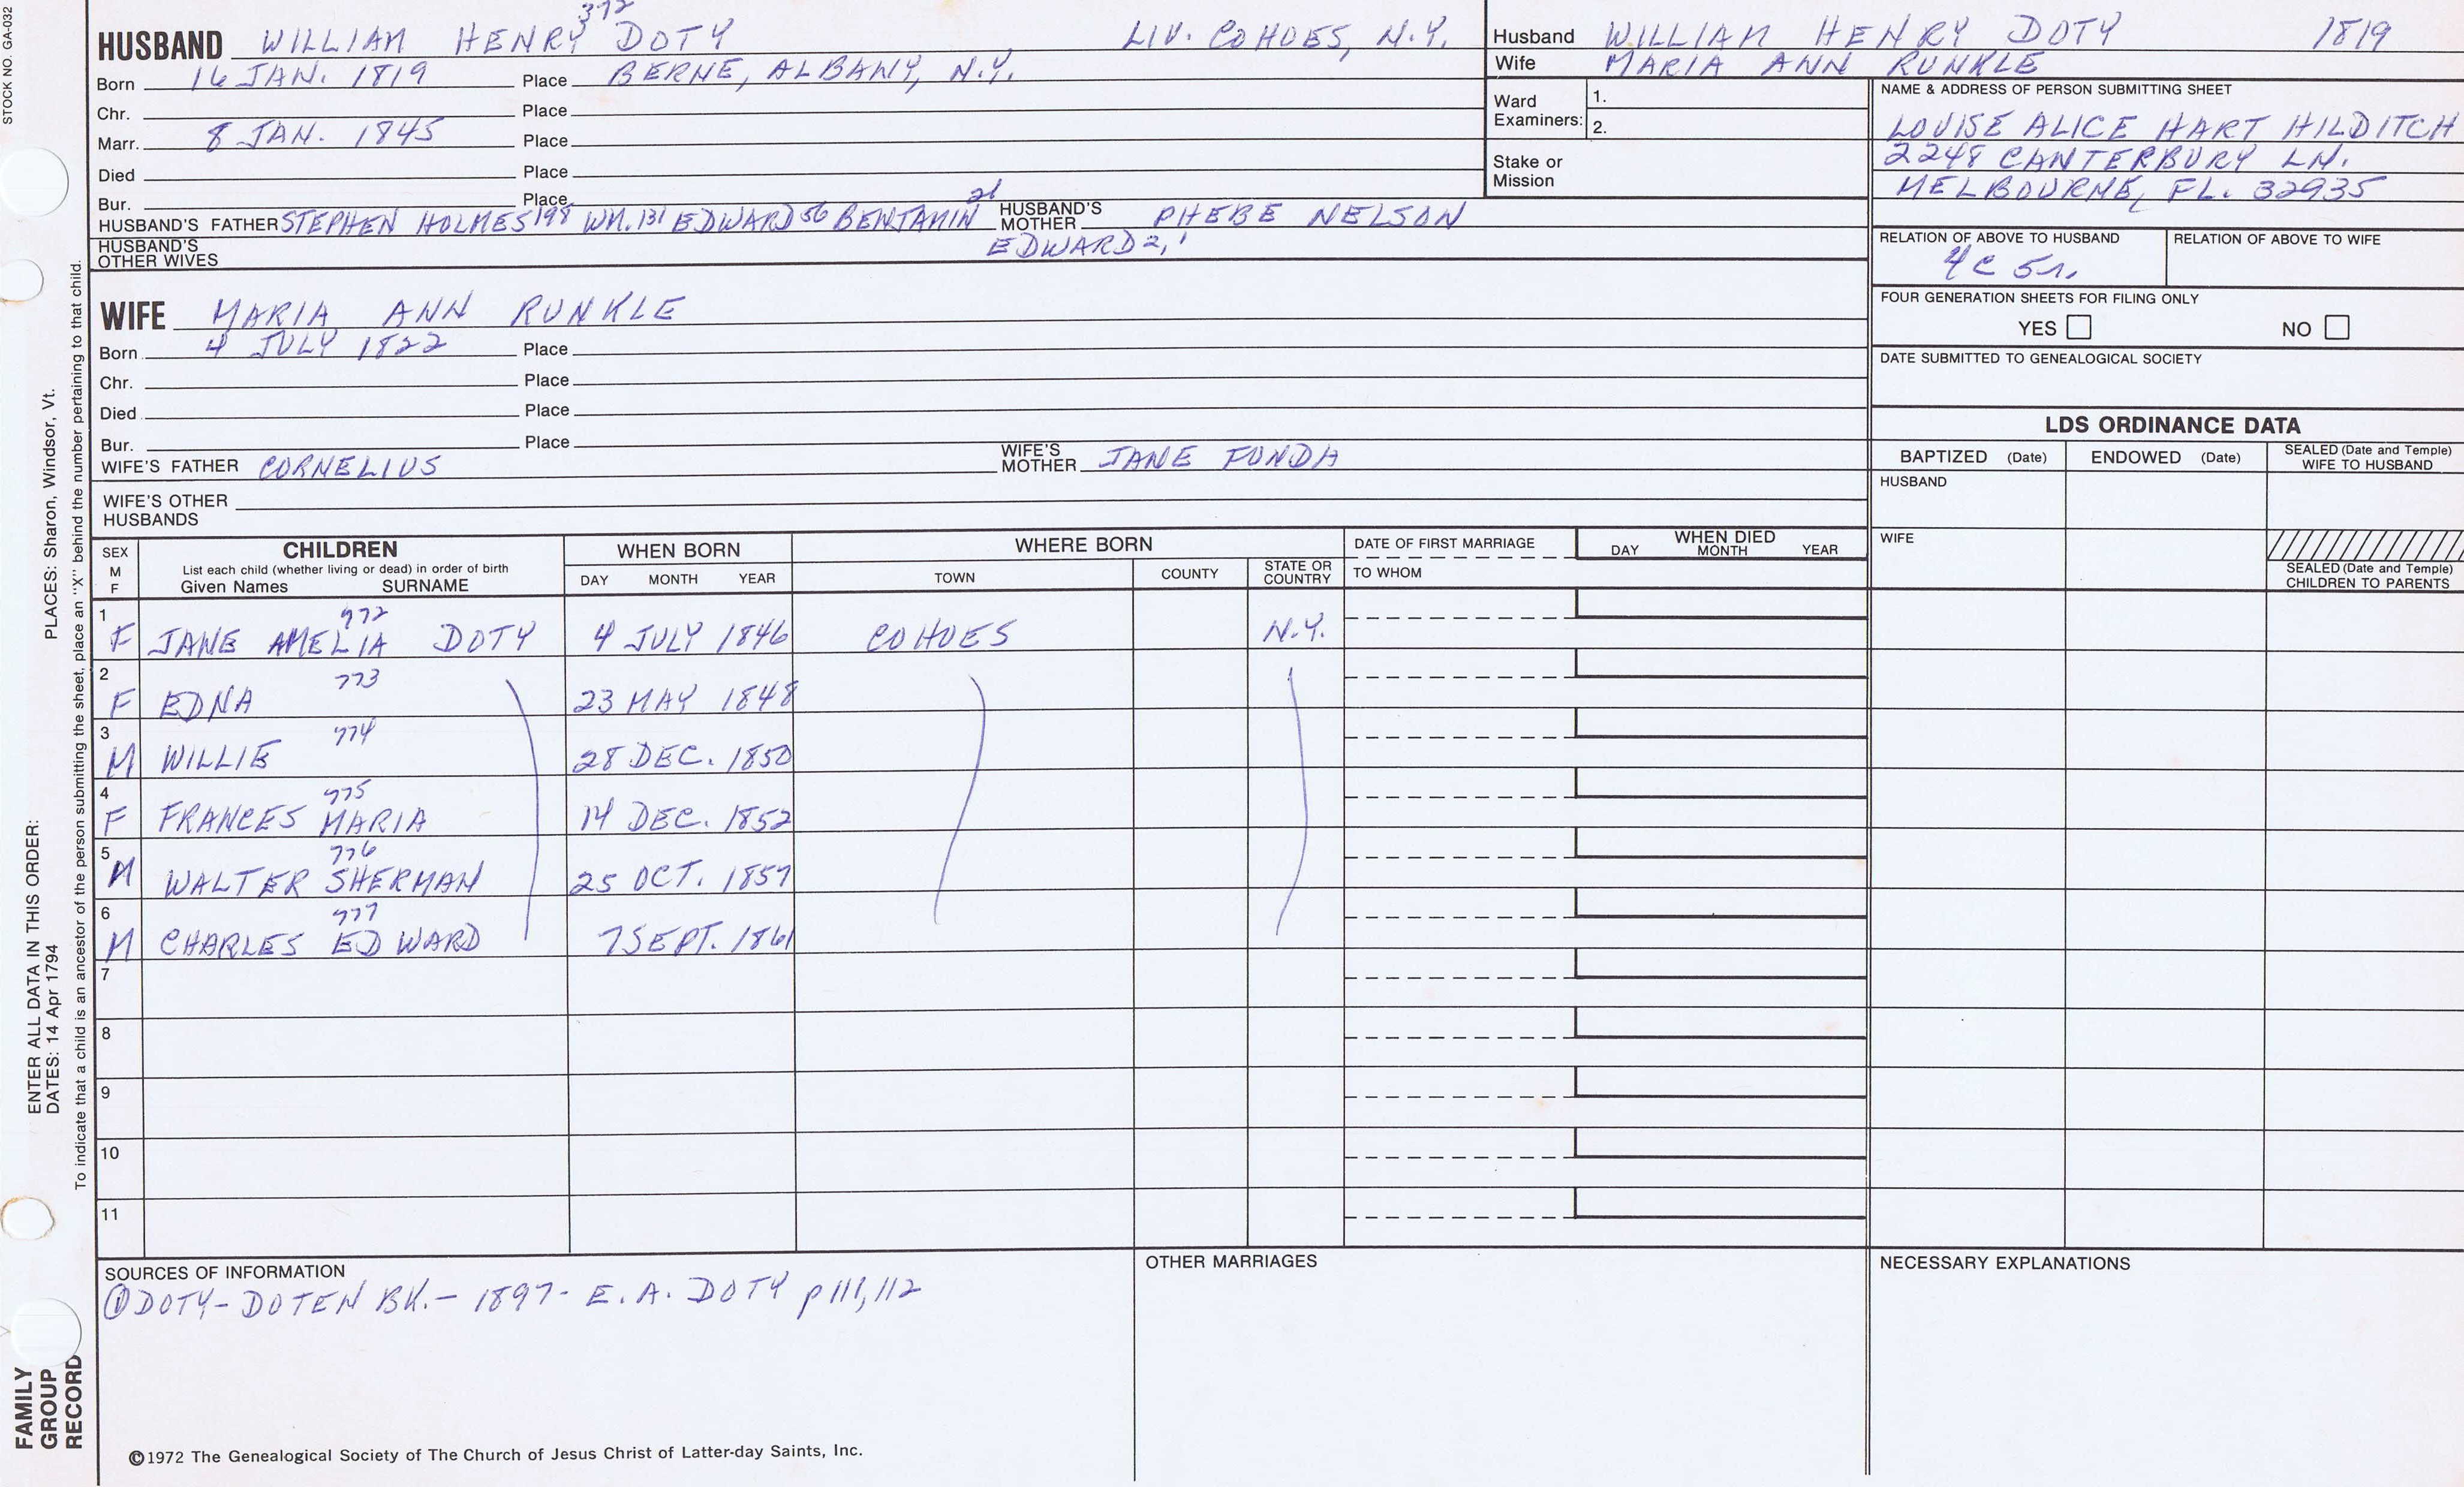 STOCK NO. GA-032
372
HUSBAND WILLIAM HENRY DOTY LIV. COHOES, N.Y.
Born 16 JAN. 1819 Place BERNE, ALBANY, N.Y.
Chr. Place
Marr. 8 JAN. 1845 Place
Died Place
Bur. Place
HUSBAND'S FATHER STEPHEN HOLMES 198 WM. 131 EDWARD 56 BENJAMIN 21 HUSBAND'S MOTHER PHEBE NELSON
HUSBAND'S OTHER WIVES EDWARD 2, 1
WIFE MARIA ANN RUNKLE
Born 4 JULY 1822 Place
Chr. Place
Died Place
Bur. Place
WIFE'S FATHER CORNELIUS WIFE'S MOTHER JANE FONDA
WIFE'S OTHER HUSBANDS
Husband WILLIAM HENRY DOTY 1819
Wife MARIA ANN RUNKLE
Ward Examiners: 1.
2.
Stake or Mission
NAME & ADDRESS OF PERSON SUBMITTING SHEET
LOUISE ALICE HART HILDITCH
2248 CANTERBURY LN.
MELBOURNE, FL. 32935
RELATION OF ABOVE TO HUSBAND RELATION OF ABOVE TO WIFE
4C 5r.
FOUR GENERATION SHEETS FOR FILING ONLY
YES NO
DATE SUBMITTED TO GENEALOGICAL SOCIETY
LDS ORDINANCE DATA
BAPTIZED (Date) ENDOWED (Date) SEALED (Date and Temple) WIFE TO HUSBAND
HUSBAND
WIFE
SEALED (Date and Temple) CHILDREN TO PARENTS
SEX M F
CHILDREN
List each child (whether living or dead) in order of birth
Given Names SURNAME
WHEN BORN
DAY MONTH YEAR
WHERE BORN
TOWN COUNTY STATE OR COUNTRY
DATE OF FIRST MARRIAGE
TO WHOM
WHEN DIED
DAY MONTH YEAR
1 F JANE AMELIA 772 DOTY 4 JULY 1846 COHOES N.Y.
2 F EDNA 773 23 MAY 1848
3 M WILLIE 774 28 DEC. 1850
4 F FRANCES MARIA 775 14 DEC. 1852
5 M WALTER SHERMAN 776 25 OCT. 1857
6 M CHARLES EDWARD 777 7 SEPT. 1861
7
8
9
10
11
SOURCES OF INFORMATION
① DOTY-DOTEN BK. - 1897 - E. A. DOTY p 111, 112
OTHER MARRIAGES
NECESSARY EXPLANATIONS
©1972 The Genealogical Society of The Church of Jesus Christ of Latter-day Saints, Inc.
ENTER ALL DATA IN THIS ORDER:
DATES: 14 Apr 1794 PLACES: Sharon, Windsor, Vt.
To indicate that a child is an ancestor of the person submitting the sheet, place an "X" behind the number pertaining to that child.
FAMILY
GROUP
RECORD